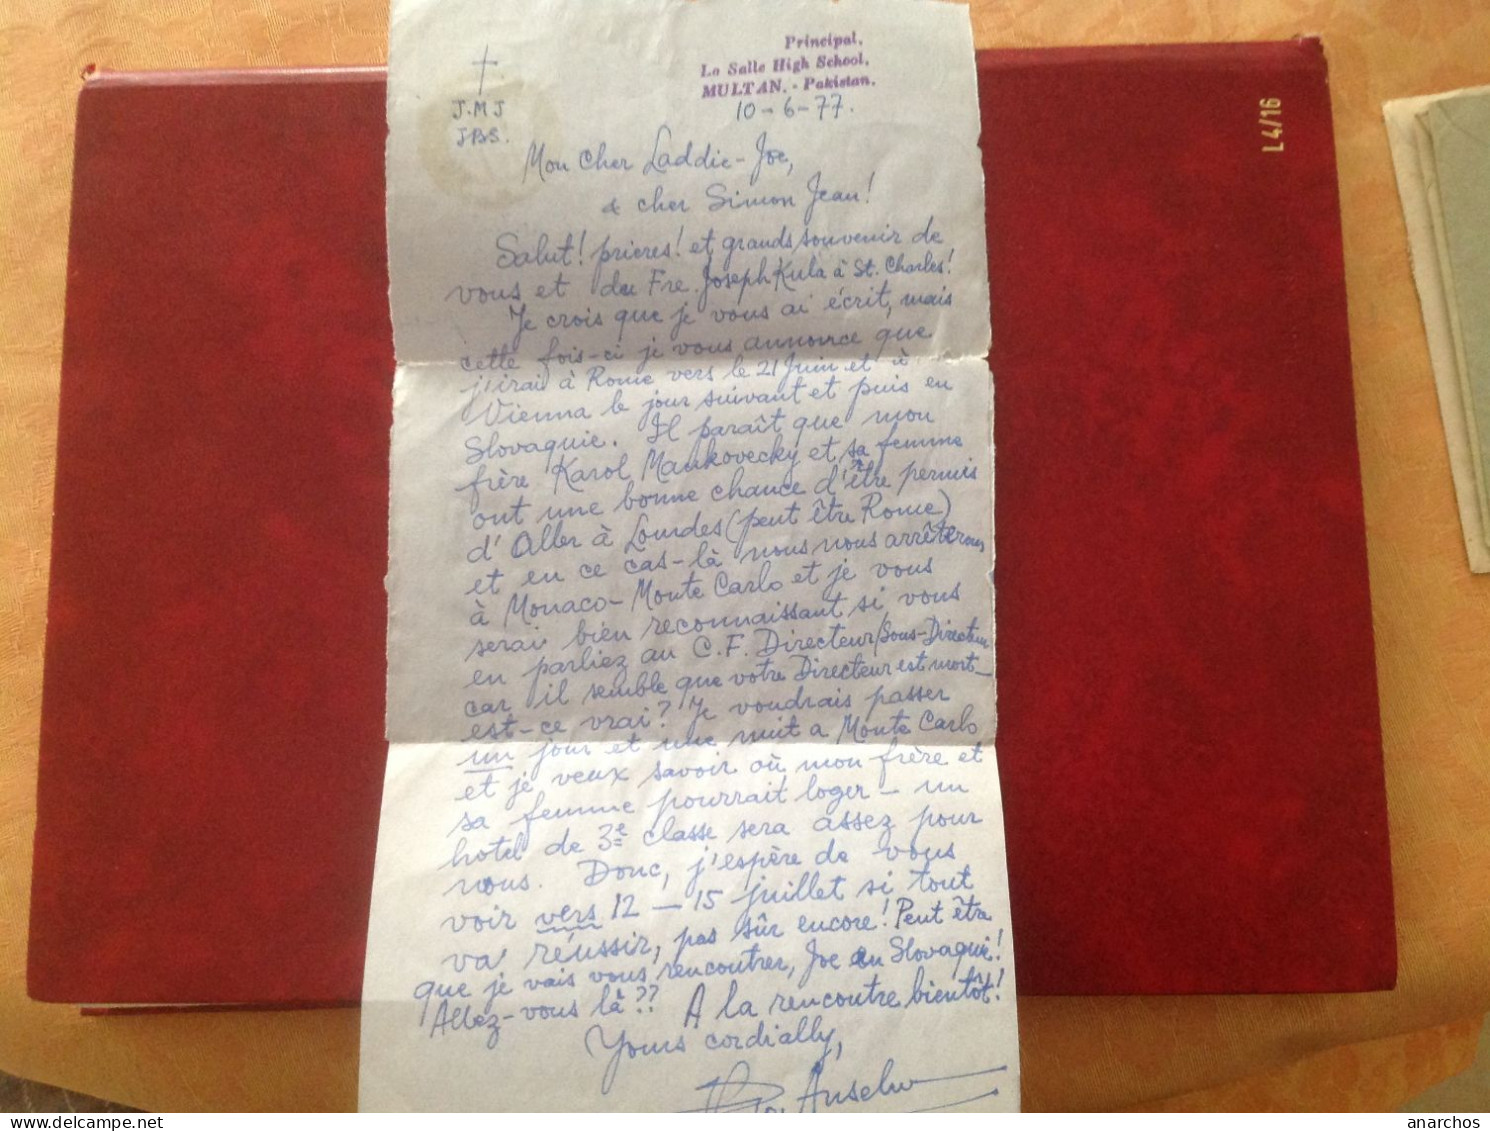 Principal,
La Salle High School,
MULTAN. - Pakistan.
10-6-77.
J.M J
JBS.
Mon Cher Laddie-Joe,
& cher Simon Jean!
Salut! prieres! et grands souvenir de
vous et du Fre. Joseph Kula à St. Charles!
Je crois que je vous ai écrit, mais
cette fois-ci je vous annonce que
j'irai à Rome vers le 21 Juin et à
Vienna le jour suivant et puis en
Slovaquie. Il paraît que mon
frère Karol Mankovecky et sa femme
ont une bonne chance d'être permis
d'Aller à Lourdes (peut être Rome)
et en ce cas-là nous nous arrêterons
à Monaco-Monte Carlo et je vous
serai bien reconnaissant si vous
en parliez au C.F. Directeur/Sous-Directeur
car il semble que votre Directeur est mort-
est-ce vrai? Je voudrais passer
un jour et une nuit a Monte Carlo
et je veux savoir où mon frère et
sa femme pourrait loger - un
hotel de 3e classe sera assez pour
nous. Donc, j'espère de vous
voir vers 12 - 15 juillet si tout
va réussir, pas sûr encore! Peut être
que je vais vous rencontrer, Joe en Slovaquie!
Allez-vous là?? A la rencontre bientôt!
Yours cordially,
Anselm
L 4/16
anarchos